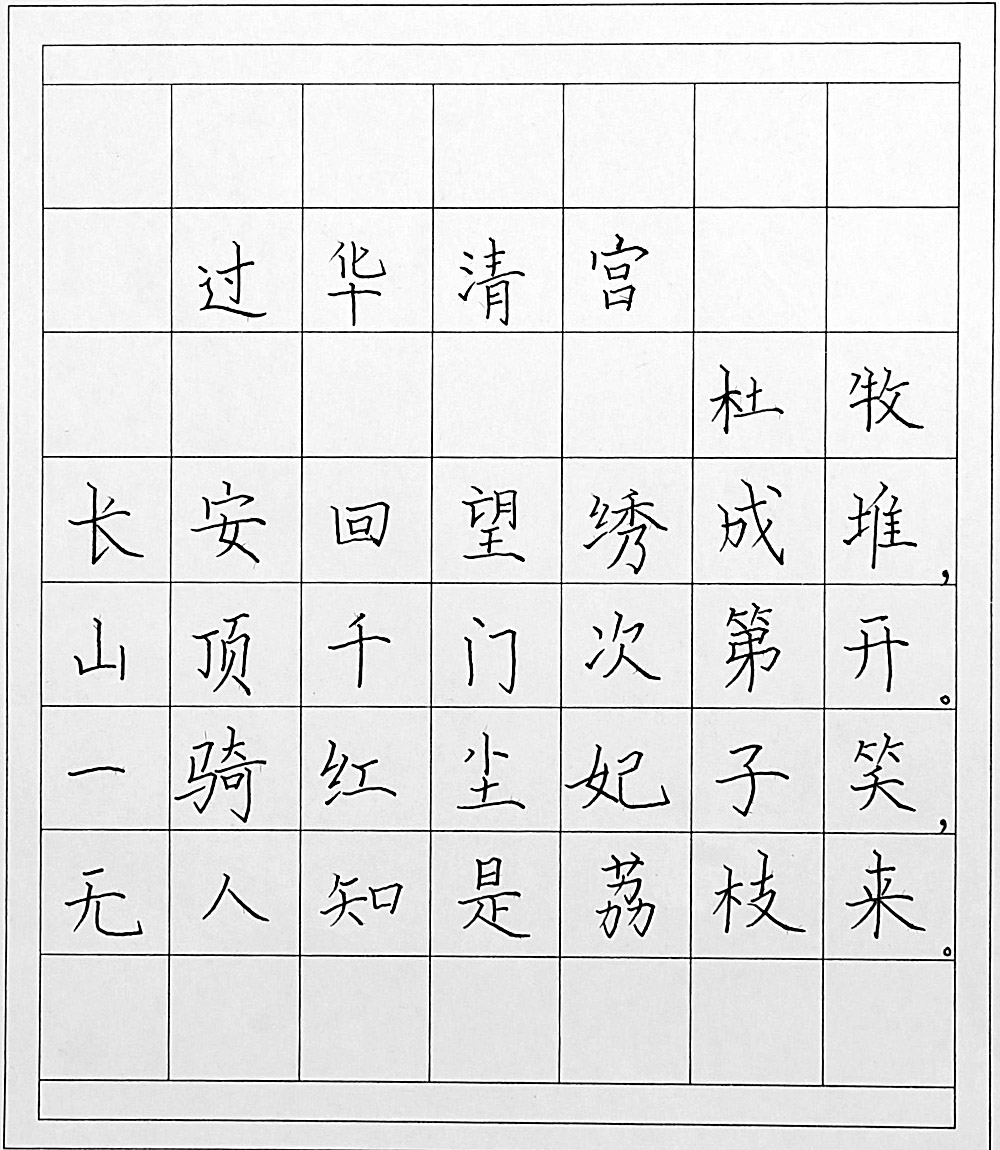 过华清宫
杜牧
长安回望绣成堆，
山顶千门次第开。
一骑红尘妃子笑，
无人知是荔枝来。